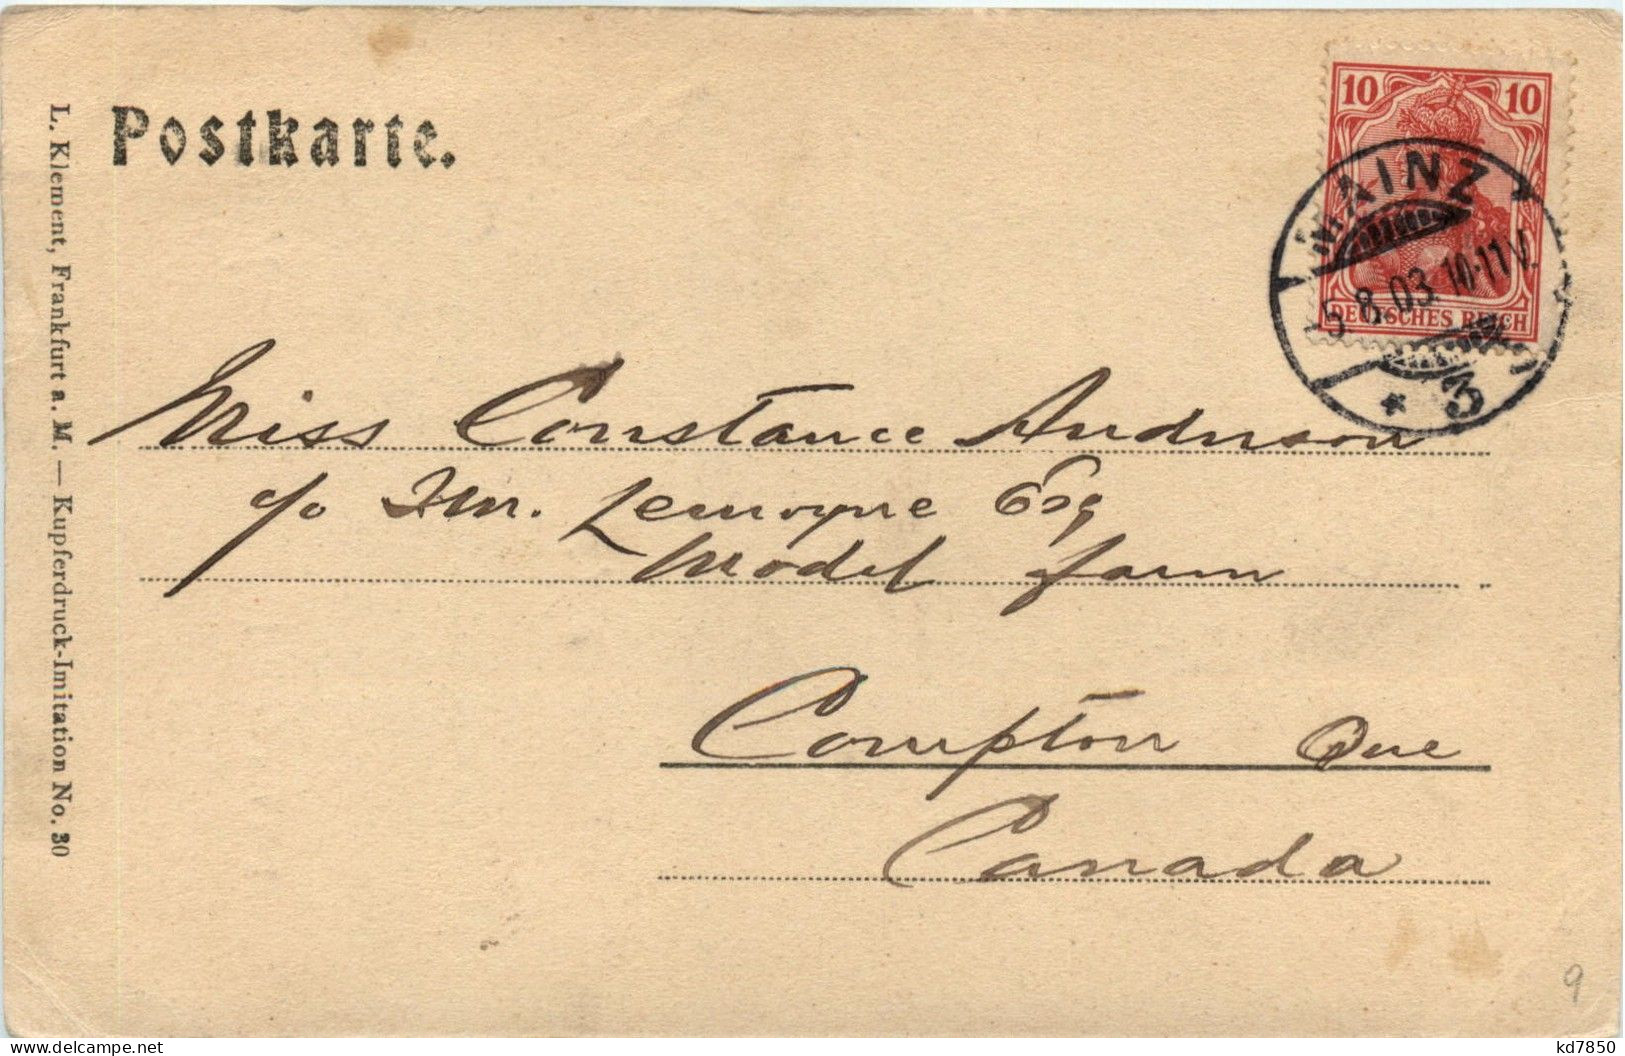 Postkarte.
L. Klement, Frankfurt a. M. — Kupferdruck-Imitation No. 30
10 10
DEUTSCHES REICH
MAINZ
-5.8.03.10-11V.
* 3
Miss Constance Anderson
c/o Wm. Lemoyne Esq
Model farm
Compton Que
Canada
9
www.delcampe.net
kd7850